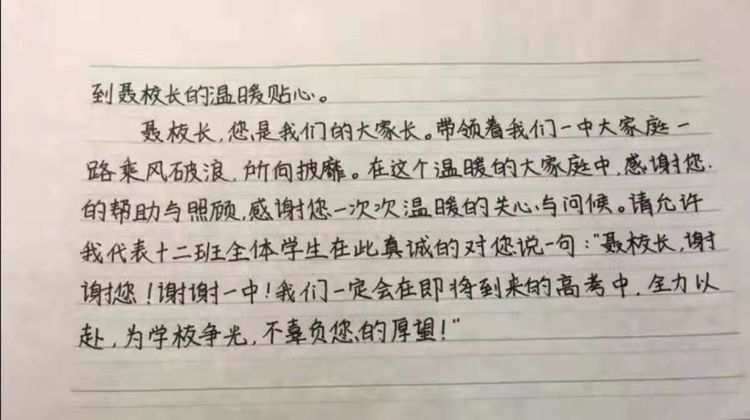 到聂校长的温暖贴心。
聂校长，您是我们的大家长。带领着我们一中大家庭一
路乘风破浪，所向披靡。在这个温暖的大家庭中，感谢您
的帮助与照顾，感谢您一次次温暖的关心与问候。请允许
我代表十二班全体学生在此真诚的对您说一句：“聂校长，谢
谢您！谢谢一中！我们一定会在即将到来的高考中，全力以
赴，为学校争光，不辜负您的厚望！”